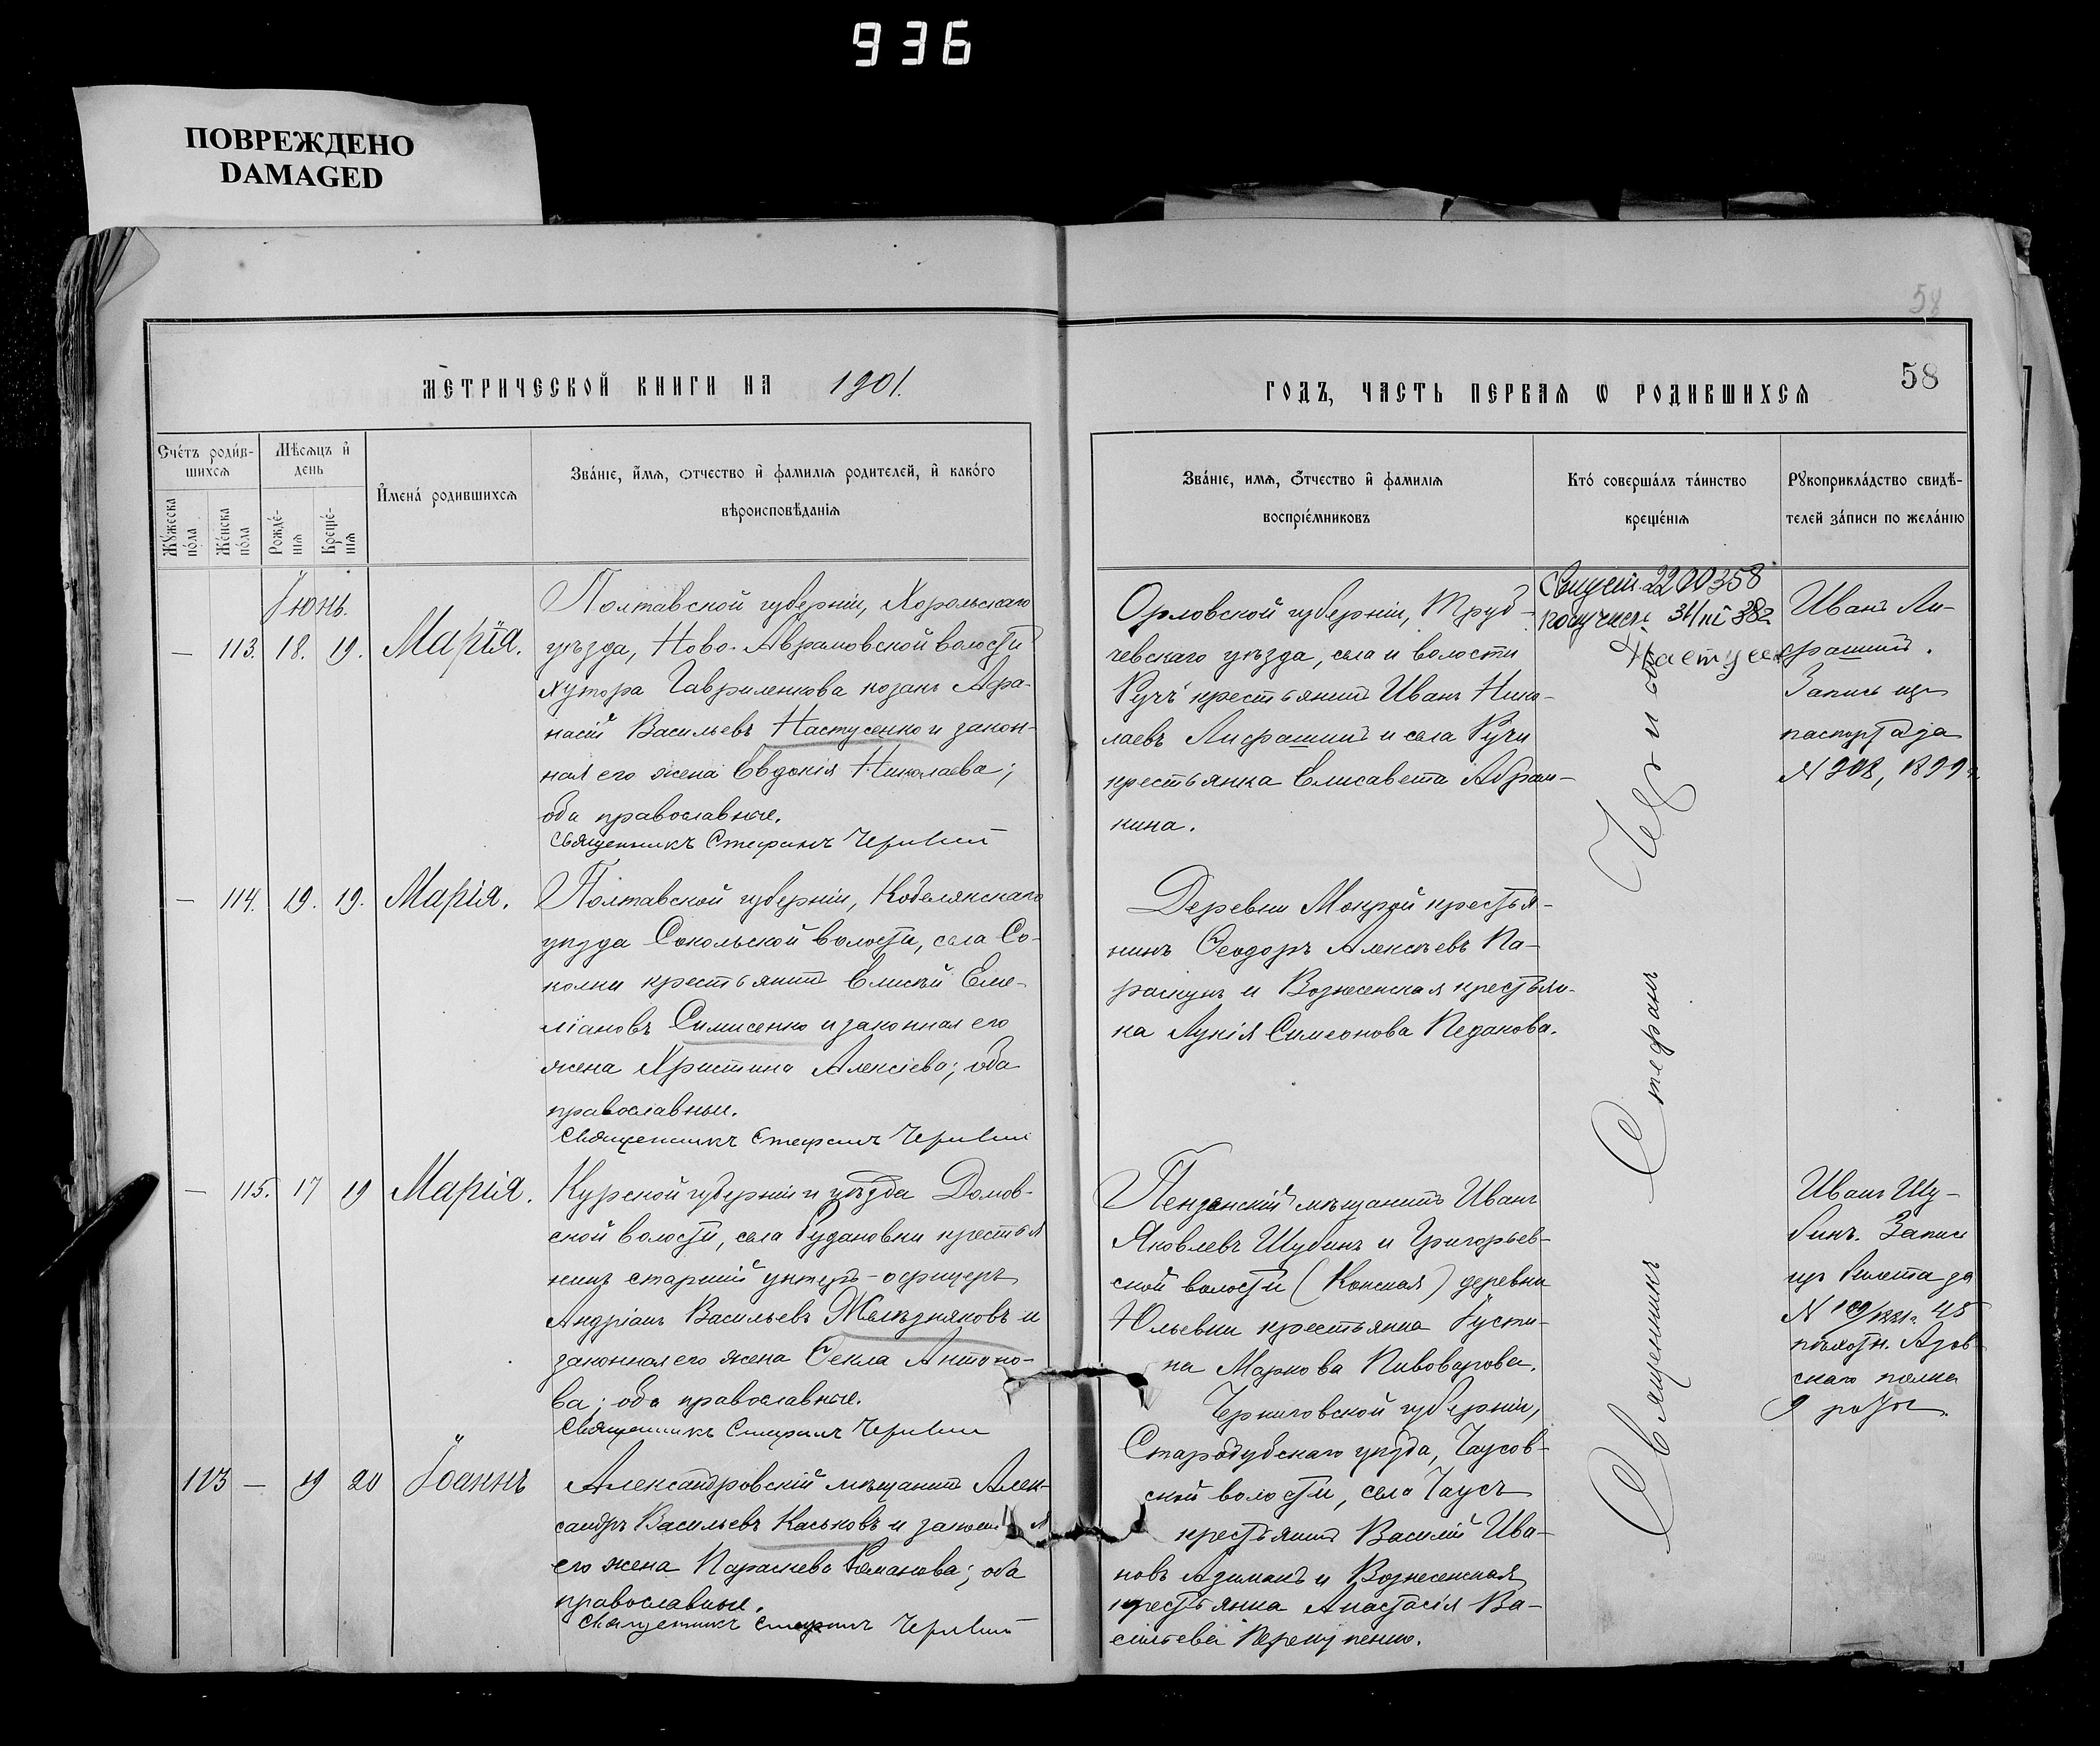 936
ПОВРЕЖДЕНО
DAMAGED
58
МЕТРИЧЕСКОЙ КНИГИ НА 1901.
ГОДЪ, ЧАСТЬ ПЕРВАЯ Ѡ РОДИВШИХСЯ
58
Счетъ родив-
шихся
Мѣсяцъ и
день
Мужеска
пола
Женска
пола
Рожде-
нія
Креще-
нія
Имена родившихся
Званіе, имя, отчество и фамилія родителей, и какого
вѣроисповѣданія
Званіе, имя, отчество и фамилія
воспріемниковъ
Кто совершалъ таинство
крещенія
Рукоприкладство свидѣ-
телей записи по желанію
Іюнь.
— 113. 18. 19. Марія.
Полтавской губерніи, Хорольскаго
уѣзда, Ново-Аврамовской волости
хутора Гавриленкова козакъ Афа-
насій Васильевъ Настусенко и закон-
ная его жена Евдокія Николаева;
оба православные.
Священникъ Стефанъ
Орловской губерніи, Труб-
чевскаго уѣзда, села и волости
крестьянинъ Иванъ Нико-
лаевъ и села
крестьянка Елисавета Абрам-
кина.
2200358
Иванъ Ли-
Запись изъ
паспорта за
— 114. 19. 19. Марія.
Полтавской губерніи, Кобелякскаго
уѣзда Сокольской волости, села Со-
колки крестьянинъ Елисѣй Еме-
ліановъ Симисенко и законная его
жена Христина Алексіева; оба
православные.
Священникъ Стефанъ
Деревни Мокрой крестья-
нинъ Ѳеодоръ Алексѣевъ Па-
и Вознесенская крестьян-
ка Лукія Симеонова Педакова.
— 115. 17 19 Марія.
Курской губерніи и уѣзда Домов-
ской волости, села крестья
нинъ старшій унтеръ-офицеръ
Андріанъ Васильевъ Желѣзняковъ и
законная его жена Ѳекла Антоно-
ва; оба православные.
Священникъ Стефанъ
Пензенскій мѣщанинъ Иванъ
Яковлевъ Шубинъ и Григорьев-
ской волости (Конская) деревни
Юльевки крестьянка Іусти-
на Маркова Пивоварова.
Иванъ Шу-
бинъ. Запись
изъ билета за
пѣхотн. Азов-
скаго полка
9 роты.
113 — 19 20 Іоаннъ
Александровскій мѣщанинъ Алек-
сандръ Васильевъ Каськовъ и
его жена Параскева Романова; оба
православные.
Священникъ Стефанъ
Черниговской губерніи,
Стародубскаго уѣзда,
ской волости, села
крестьянинъ Василій Ива-
новъ и Вознесенская
крестьянка Анастасія Ва-
сильева
Священникъ Стефанъ